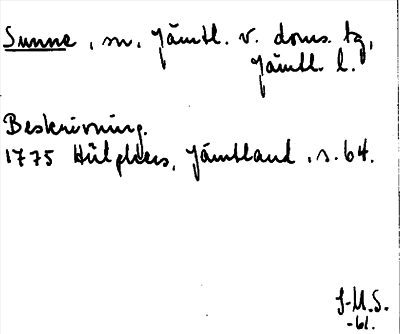 Sunne, sn, Jämtl. v. doms. tg,
Jämtl. l.
Beskrivning.
1775 Hülphers, Jämtland, s. 64.
J-M.S.
-61.